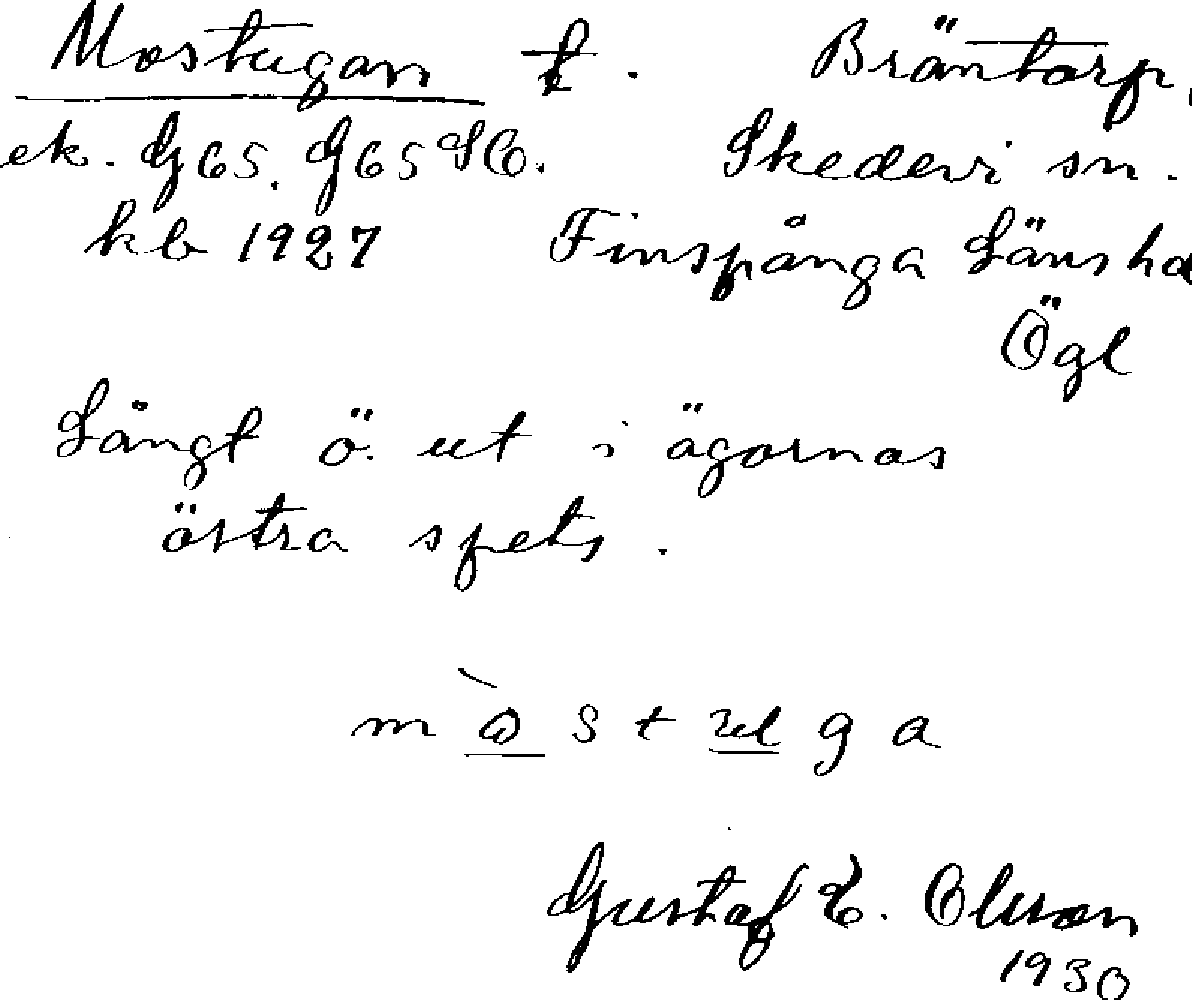 Mostugan t. Bräntorp,
ek. G65. G65 SO. Skedevi sn.
kb 1927 Finspånga Länshd
Ögl
Långt ö. ut i ägornas
östra spets.
m s t u g a
Gustaf E. Olsson
1930